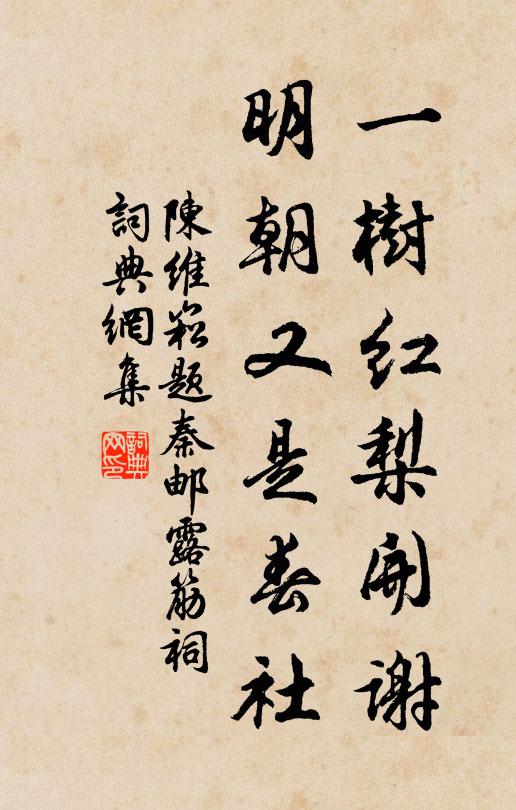 一樹红梨開謝
明朝又是春社
陳維崧題秦邮露筋祠
詞典網集
詞典
网印